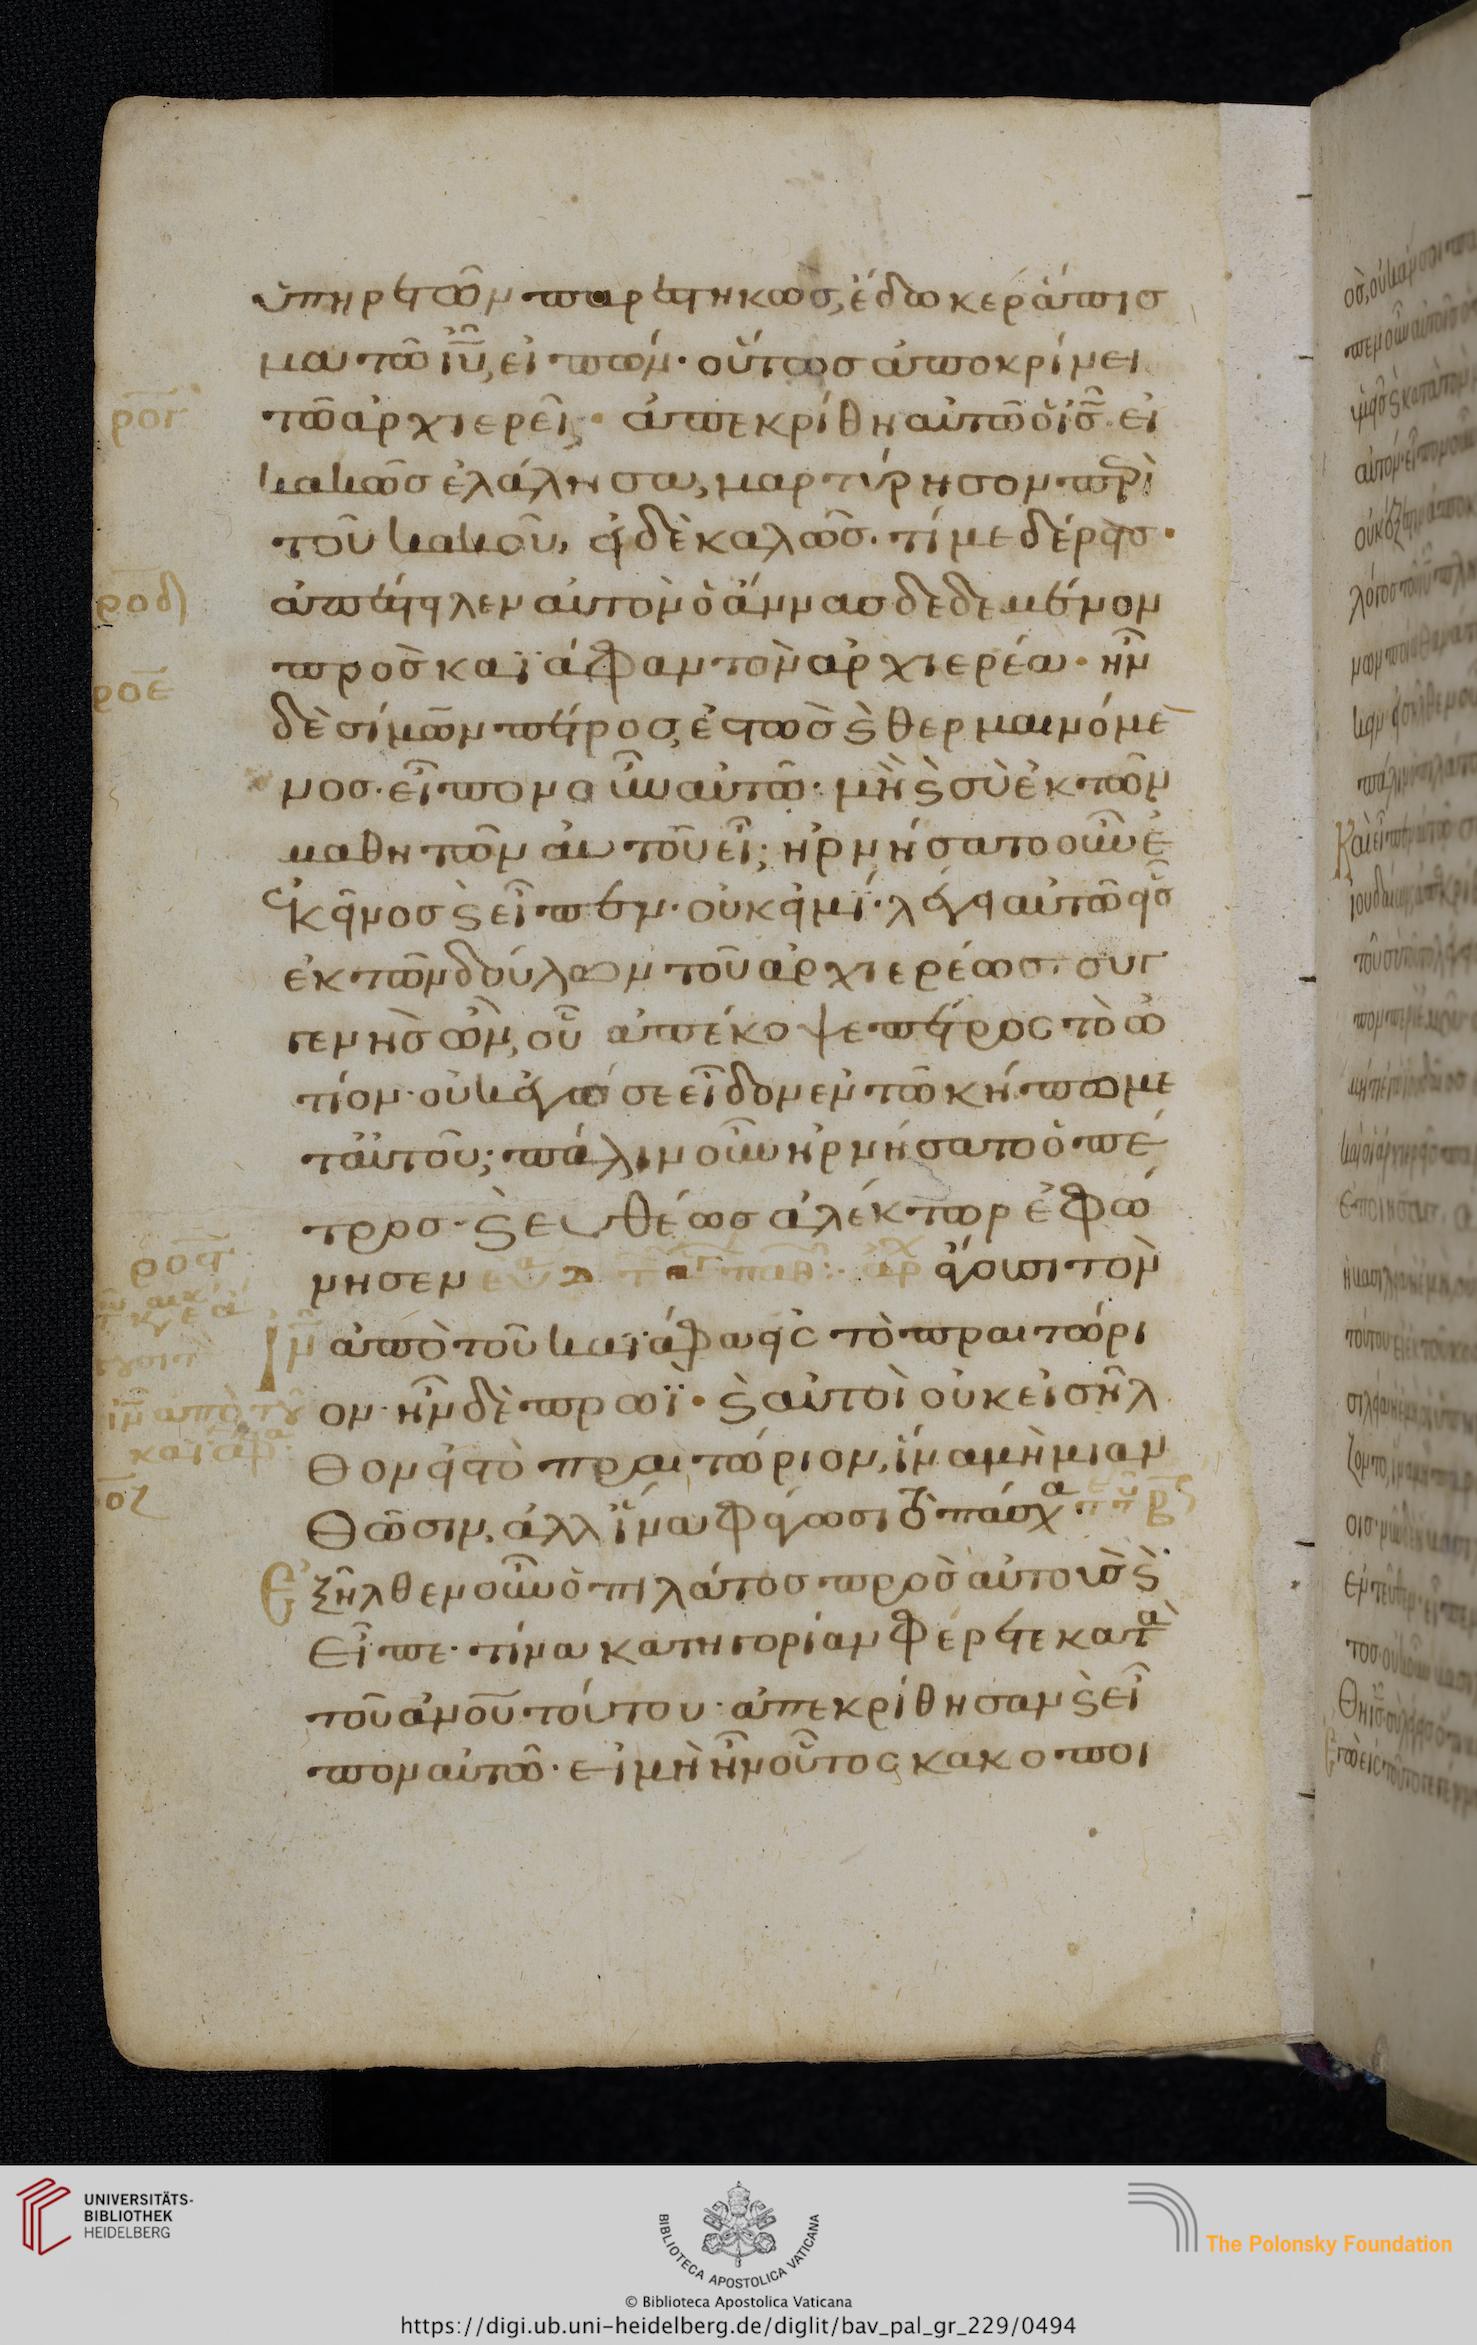 ὑπηρετῶν παρεστηκὼς, ἔδωκε ράπισ
μα τῶ ῑῡ, εἰπών· οὕτως ἀποκρίνει
ρογ
τῶ ἀρχιερεῖ; ἀπεκρίθη αὐτῶ ὁ ῑς̄· εἰ
κακῶς ἐλάλησα, μαρτύρησον περὶ
τοῦ κακοῦ, εἰ δὲ καλῶς. τί με δέρεις·
ροδ
ἀπέστειλεν αὐτὸν ὁ ἄννας δεδεμένον
ροε
πρὸς καϊάφαν τὸν ἀρχιερέα· ἦν
δὲ σίμων πέτρος, ἑστὼς ϗ θερμαινόμε
νος· εἶπον οὖν αὐτῶ· μὴ ϗ σὺ ἐκ τῶν
μαθητῶν αυτοῦ εἶ; ἠρνήσατο οὖν ἐ
κεῖνος ϗ εἶπεν· οὐκ εἰμί· λέγει αὐτῶ εἷς
ἐκ τῶν δούλων τοῦ ἀρχιερέως· συγ
γενὴς ὢν, οὗ ἀπέκοψε πέτρος τὸ ὠ
τίον· οὐκ ἐγώ σε εἶδον ἐν τῶ κήπω με
τ᾽αὐτοῦ; πάλιν οὖν ἠρνήσατο ὁ πέ
τρος· ϗ ευθέως ἀλέκτωρ ἐφώ
ροϛ
νησεν ἀρχ ἄγουσι τὸν
ῑν̄ ἀπὸ τοῦ καϊάφα εἰς τὸ πραιτώρι
ῑν̄ απὸ τοῦ
καϊάφα
ον· ἦν δὲ πρωΐ· ϗ αὐτοὶ οὐκ εἰσῆλ
θον εἰς τὸ πραιτώριον, ἵνα μὴ μιαν
ροζ
θῶσιν, ἀλλ ἵνα φάγωσι τὸ πάσχα·
Ἐξῆλθεν οὖν ὁ πιλάτος πρὸς αὐτοὺς ϗ
εἶπε· τίνα κατηγορίαν φέρετε κατὰ
τοῦ ἀνου τούτου· ἀπεκρίθησαν ϗ εἶ
πον αὐτῶ· εἰ μὴ ἦν οὗτος κακοποι
UNIVERSITÄTS-
BIBLIOTHEK
HEIDELBERG
BIBLIOTECA APOSTOLICA VATICANA
The Polonsky Foundation
© Biblioteca Apostolica Vaticana
https://digi.ub.uni-heidelberg.de/diglit/bav_pal_gr_229/0494